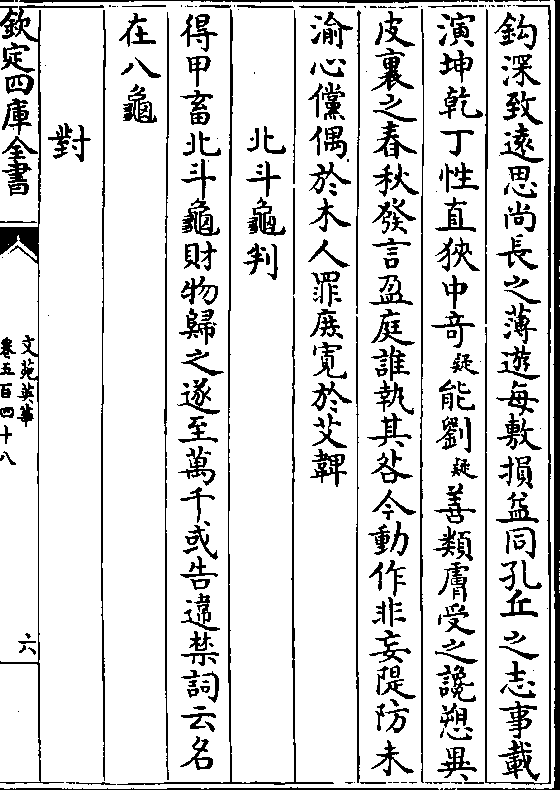 鈎深致遠思尚長之薄遊每敷損益同孔丘之志事載
演坤乾丁性直狹中竒疑能劉疑善類膚受之讒愬異
皮裏之春秋發言盈庭誰執其咎今動作非妄隄防未
渝心儻偶於木人罪庶寛於艾韠
北斗龜判
得甲畜北斗龜財物歸之遂至萬千或告違禁詞云名
在八龜
對
欽定四庫全書
文苑英華
卷五百四十八
六